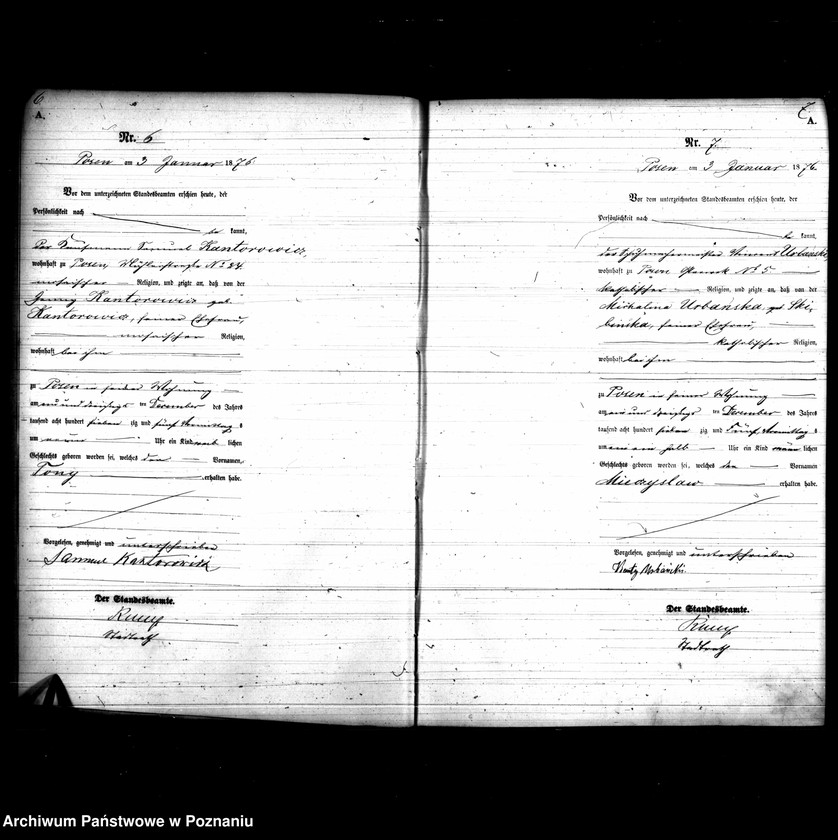 6
A.
Nr. 6
Posen am 3 Januar 1876.
Vor dem unterzeichneten Standesbeamten erschien heute, der
Persönlichkeit nach
be kannt,
der Kaufmann Samuel Kantorowicz,
wohnhaft zu Posen, No 24.
mosaischer Religion, und zeigte an, daß von der
Jenny Kantorowicz geb.
Kantorowicz, seiner Ehefrau,
mosaischer Religion,
wohnhaft bei ihm
zu Posen in seiner Wohnung
am ein und dreißigst ten December des Jahres
tausend acht hundert sieben zig und fünf Vormittag s
um neun Uhr ein Kind weib lichen
Geschlechts geboren worden sei, welches den Vornamen
Tony erhalten habe.
Vorgelesen, genehmigt und unterschrieben
Samuel Kantorowicz
Der Standesbeamte.
Stadtrath
7
A.
Nr. 7.
Posen am 3 Januar 1876.
Vor dem unterzeichneten Standesbeamten erschien heute, der
Persönlichkeit nach
be kannt,
der Schuhmachermeister Vincent Urbański,
wohnhaft zu Posen No 5
katholischer Religion, und zeigte an, daß von der
Michalina Urbańska, geb. Ski-
binska, seiner Ehefrau,
katholischer Religion,
wohnhaft bei ihm
zu Posen in seiner Wohnung
am ein und dreißigst ten December des Jahres
tausend acht hundert sieben zig und fünf Vormittag s
um ein halb Uhr ein Kind männ lichen
Geschlechts geboren worden sei, welches den Vornamen
Mieczyslaw erhalten habe.
Vorgelesen, genehmigt und unterschrieben
Der Standesbeamte.
Stadtrath
Archiwum Państwowe w Poznaniu